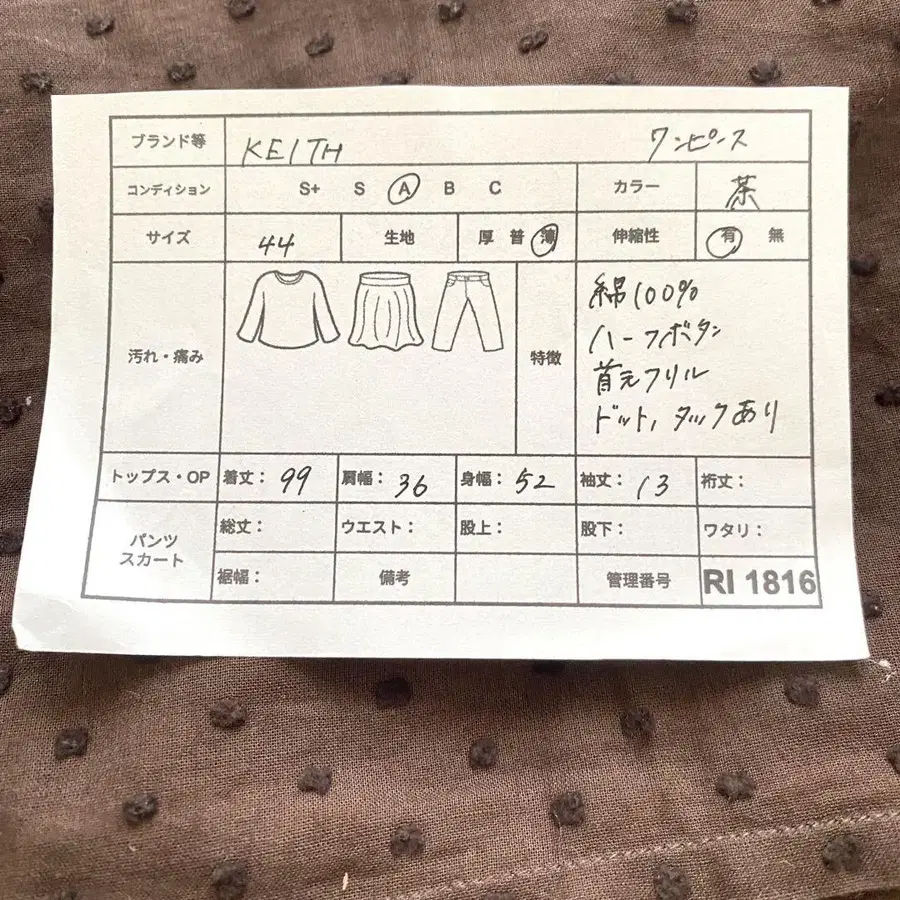 ブランド等 KEITH ワンピース
コンディション S+ S A B C カラー 茶
サイズ 44 生地 厚 普 薄 伸縮性 有 無
汚れ・痛み 特徴
綿100%
ハーフボタン
首元フリル
ドット,タックあり
トップス・OP 着丈: 99 肩幅: 36 身幅: 52 袖丈: 13 裄丈:
パンツ
スカート
総丈: ウエスト: 股上: 股下: ワタリ:
裾幅: 備考 管理番号 RI 1816